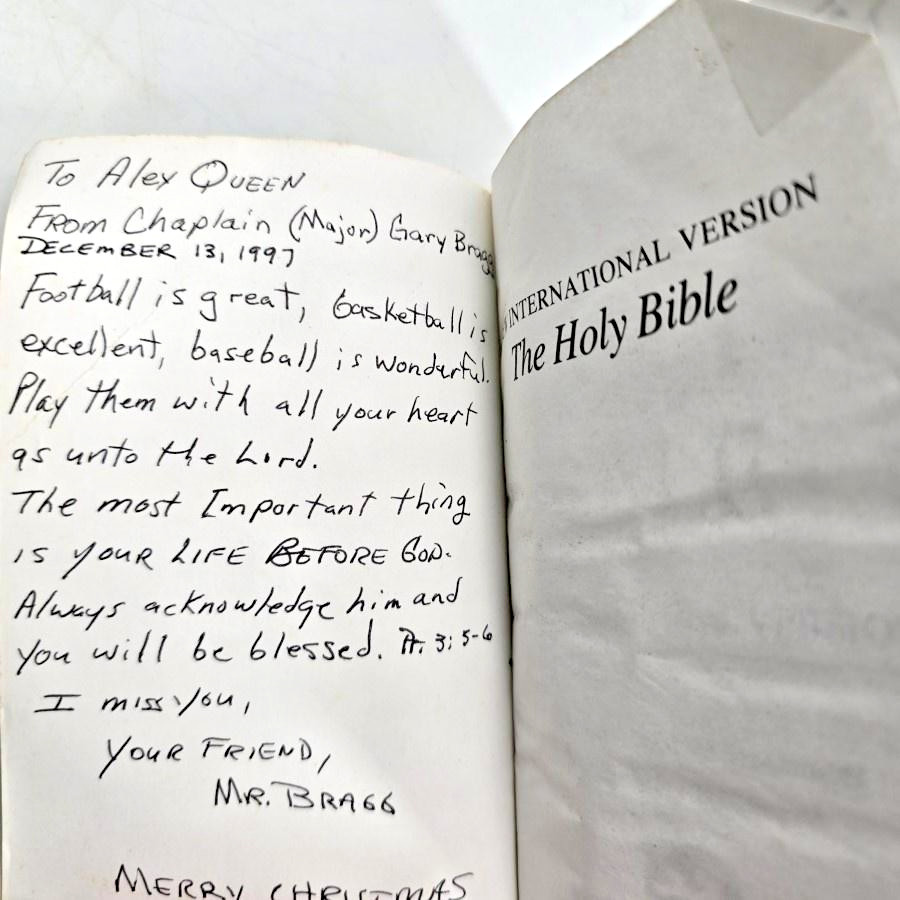 To Alex Queen
From Chaplain (Major) Gary Bragg
December 13, 1997
Football is great, basketball is
excellent, baseball is wonderful.
Play them with all your heart
as unto the Lord.
The most Important thing
is your life before God.
Always acknowledge him and
you will be blessed. Pr. 3:5-6
I miss you,
Your Friend,
Mr. Bragg
Merry Christmas
INTERNATIONAL VERSION
The Holy Bible